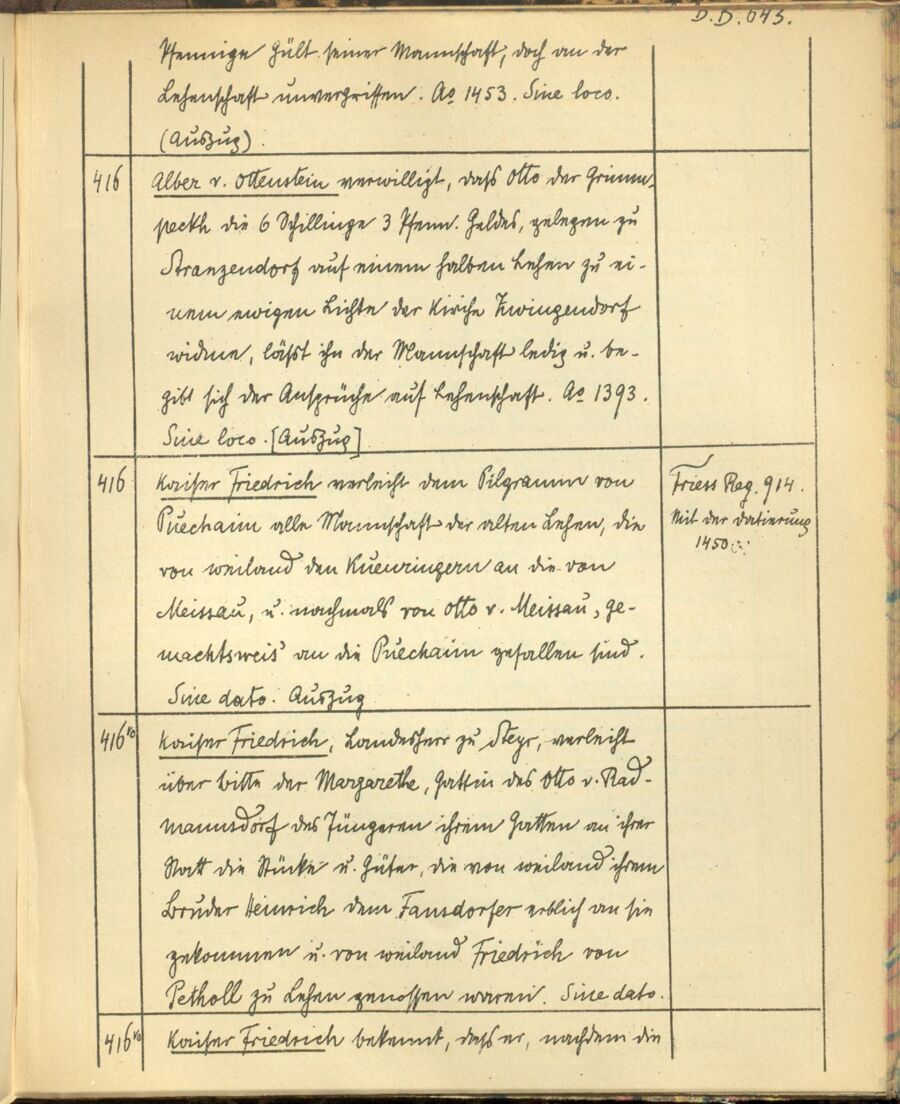 D.D. 043.
Pfennige Gült seiner Mannschaft, doch an der
Lehenschaft unvergriffen. Ao 1453. Sine loco.
(Auszug).
416 Alber v. Ottenstein verwilligt, daß Otto der Grimm-
peckh die 6 Schillinge 3 Pfenn. Geldes, gelegen zu
Stranzendorf auf einem halben Lehen zu ei-
nem ewigen Lichte der Kirche Zwingendorf
widme, läßt ihn der Mannschaft ledig u. be-
gibt sich der Ansprüche auf Lehenschaft. Ao 1393.
Sine loco. [Auszug]
416 Kaiser Friedrich verleiht dem Pilgramm von
Puechaim alle Mannschaft der alten Lehen, die
von weiland den Kuenringern an die von
Meissau, u. nachmals von Otto v. Meissau, ge-
machtsweis an die Puechaim gefallen sind.
Sine dato. Auszug
Friess Reg. 914.
Mit der Datierung
1450
416vo Kaiser Friedrich, Landesherr zu Steyr, verleiht
über Bitte der Margarethe, Gattin des Otto v. Rad-
mannsdorf des Jüngeren ihrem Gatten an ihrer
Statt die Stücke u. Güter, die von weiland ihrem
Bruder Heinrich dem Fansdorfer erblich an sie
gekommen u. von weiland Friedrich von
Petholl zu Lehen genossen waren. Sine dato.
416vo Kaiser Friedrich bekennt, daß er, nachdem die